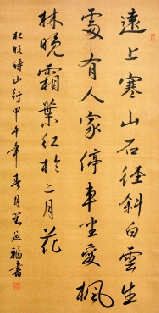 遠上寒山石徑斜白雲生
處有人家停車坐愛楓
林晚霜葉紅於二月花
杜牧詩山行甲午年春月福書